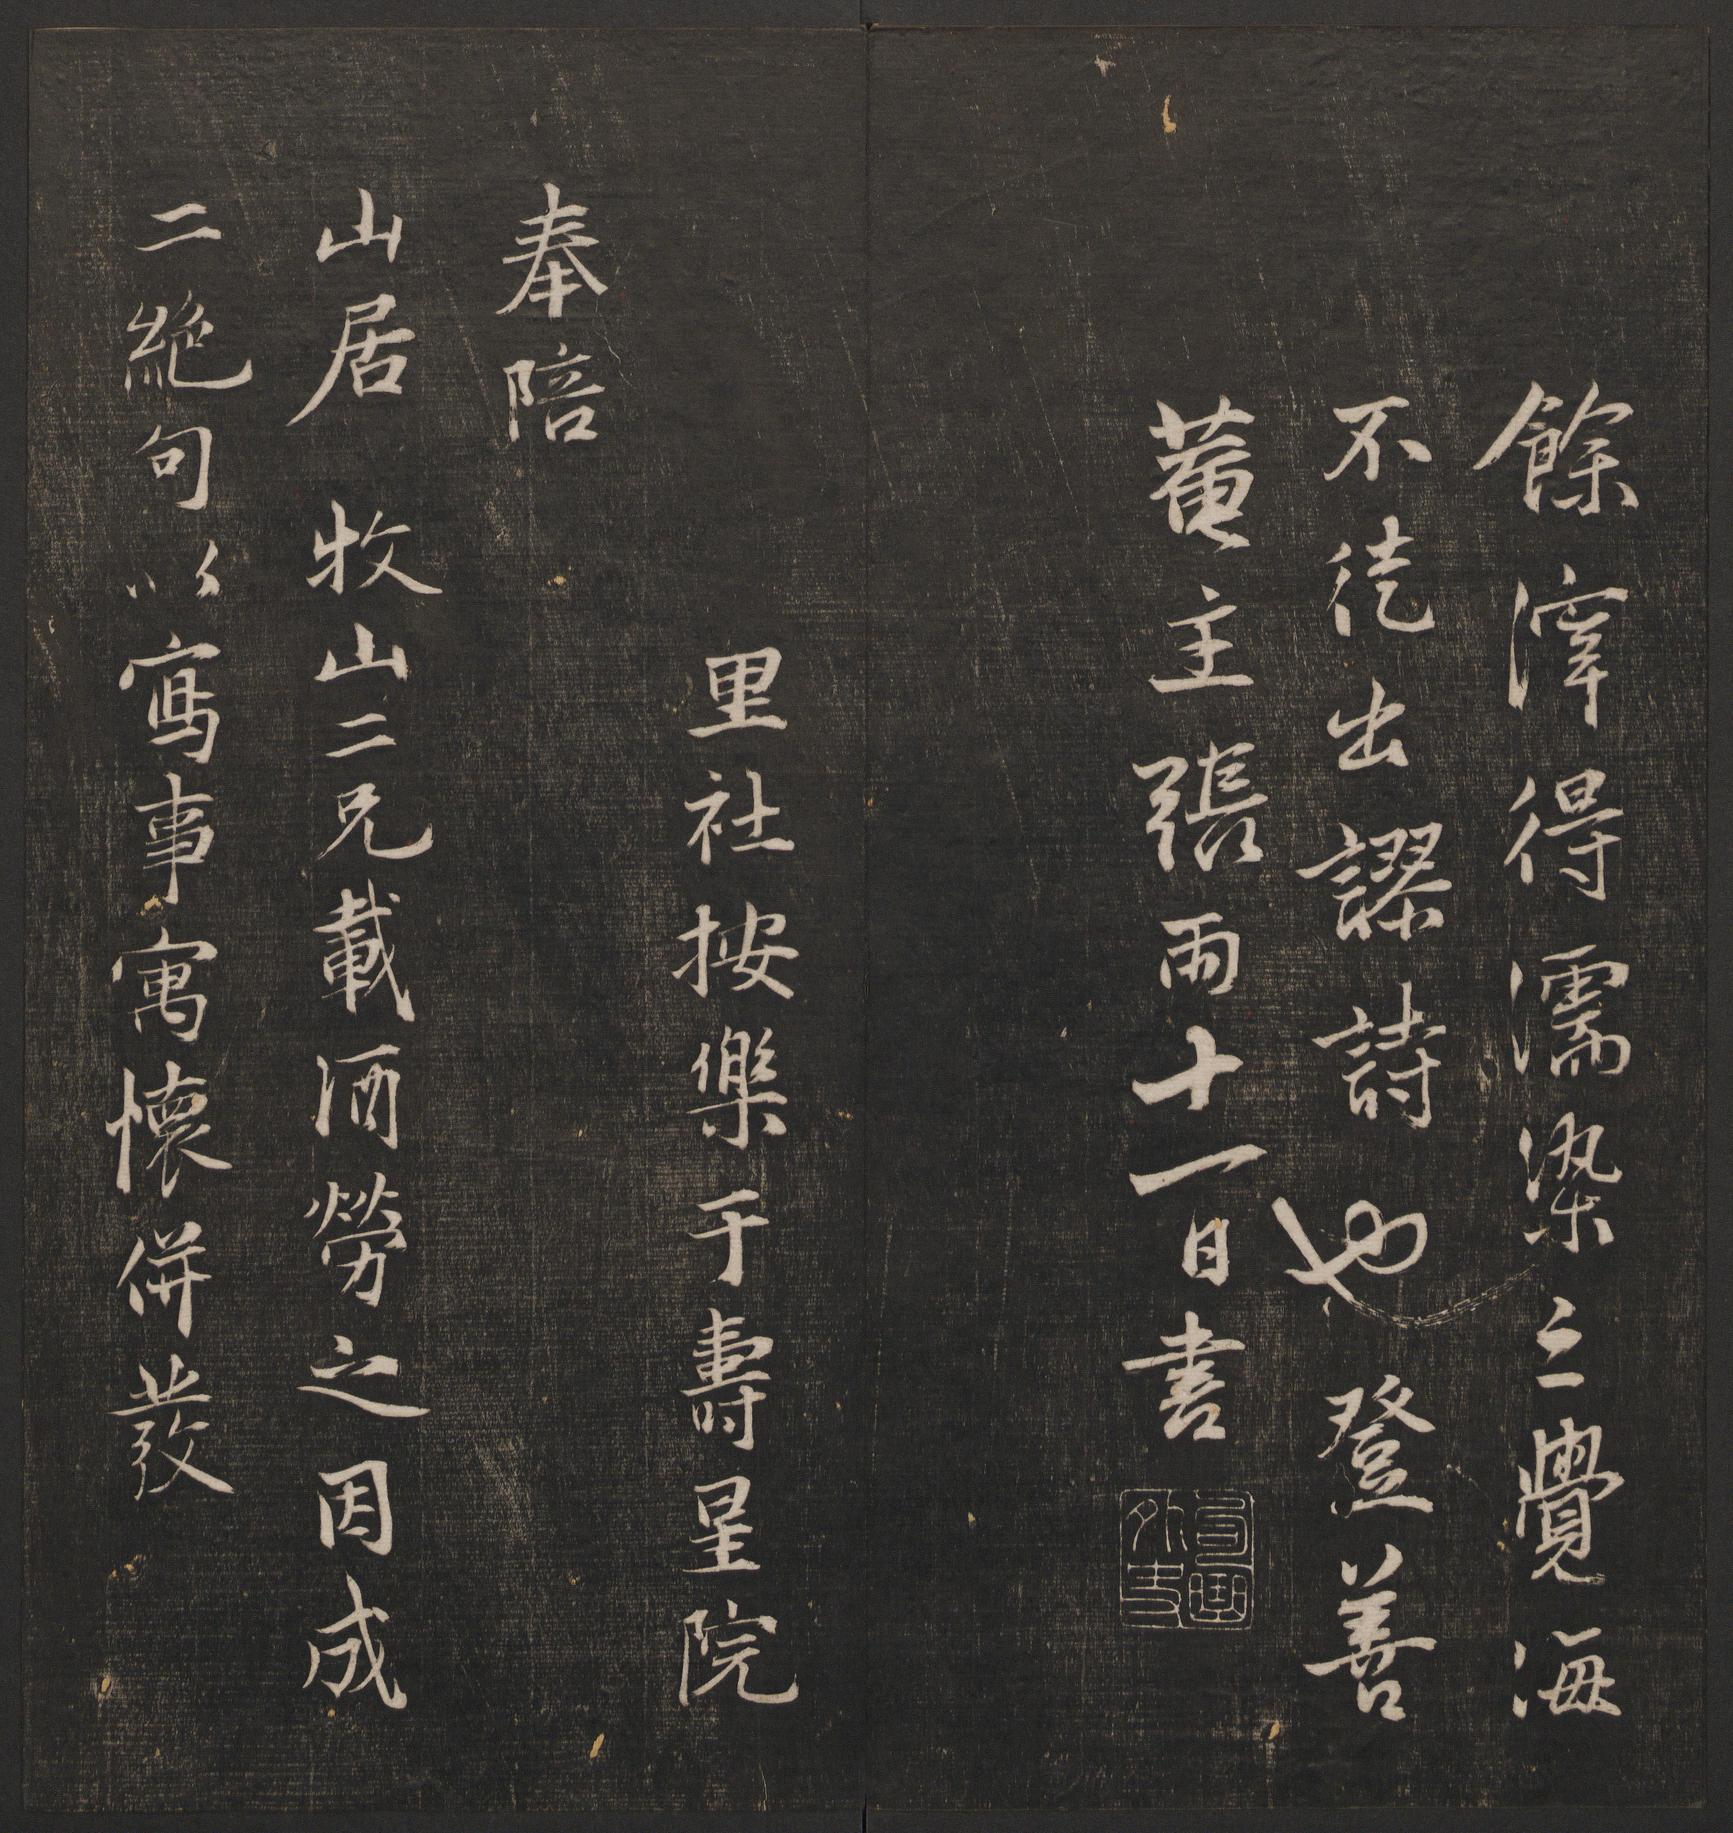 餘滓得濡染之覺海
不徒出謬詩也登善
菴主張雨十一日書
句曲外史
里社按樂于壽星院
奉陪
山居牧山二兄載酒勞之因成
二絶句以寫事寓懷併發